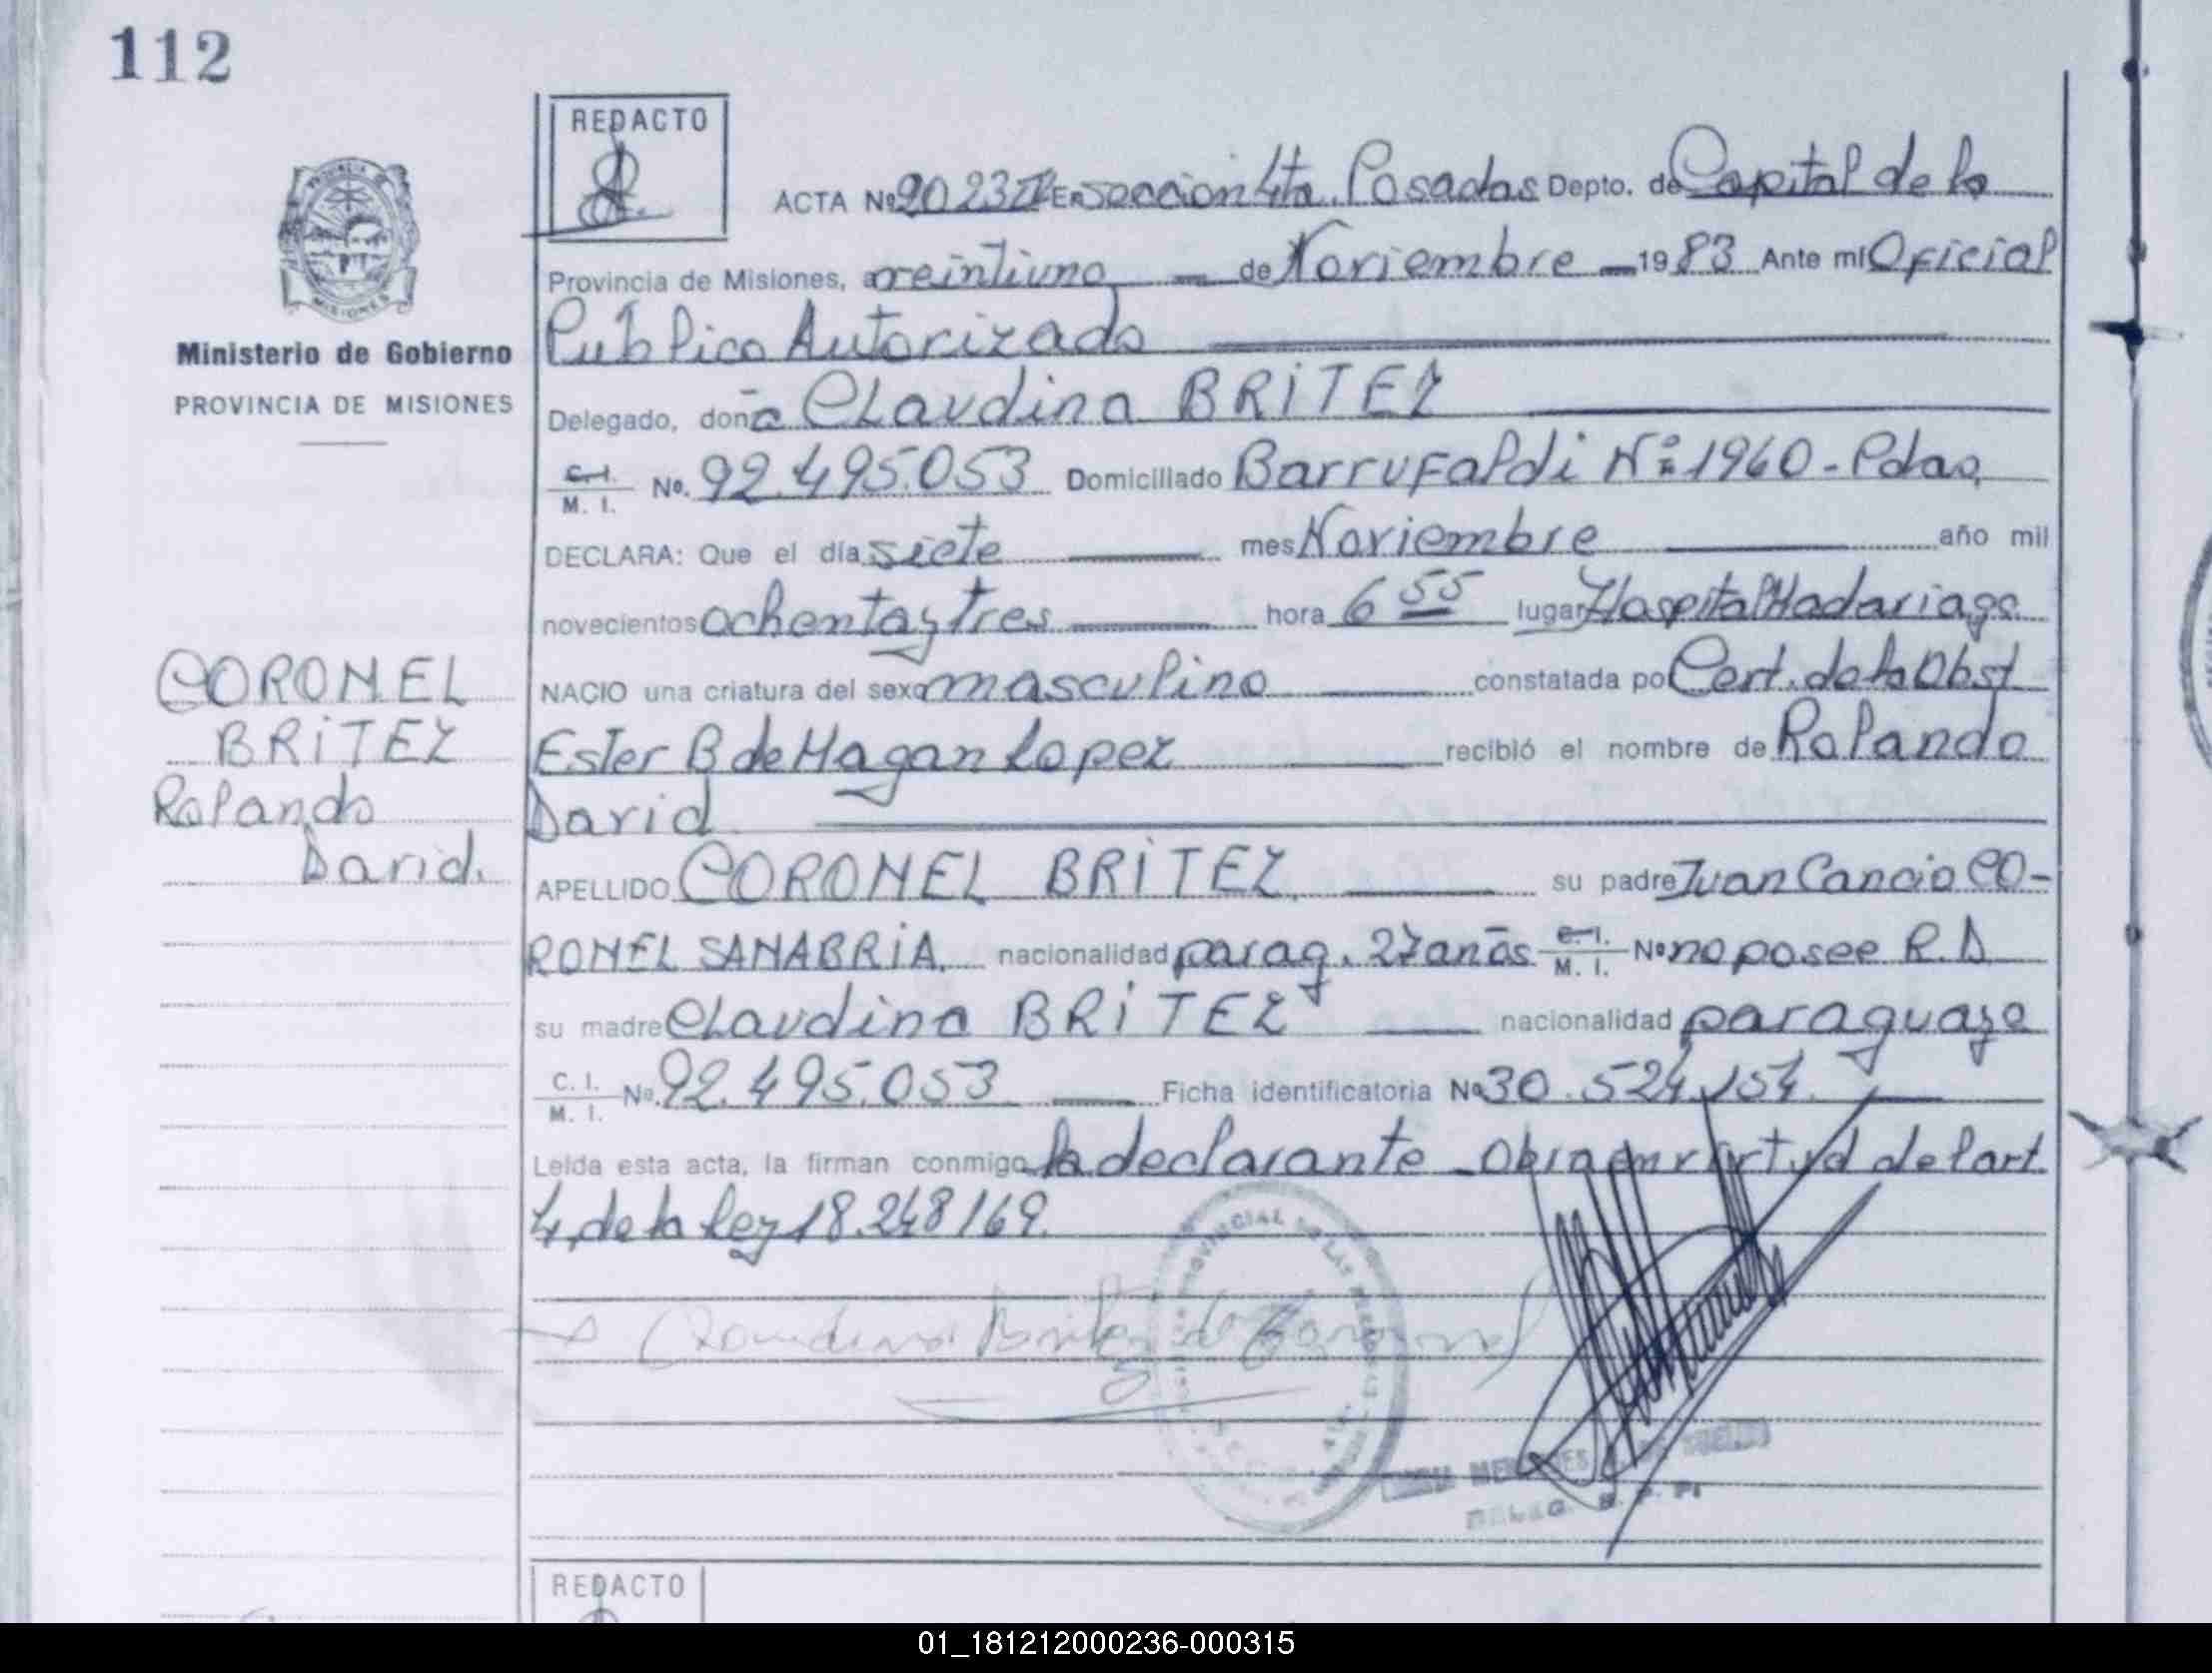 112
REDACTO
ACTA Nº 2023 IV En seccion 4ta. Posadas Depto. de Capital de la
Provincia de Misiones, a veintiuno — de Noviembre — 1983 Ante mi Oficial
Publico Autorizado
Ministerio de Gobierno
PROVINCIA DE MISIONES
Delegado, doña Claudina BRITEZ
C. I. / M. I. No. 92.495.053 Domiciliado Barrufaldi Nº 1960 - Pdas,
DECLARA: Que el día siete mes Noviembre año mil
novecientos ochenta y tres hora 6 55 lugar Hospital Madariaga
NACIO una criatura del sexo masculino constatada por Cert. de la Obst
Ester B de Hagan Lopez recibió el nombre de Rolando
David
CORONEL
BRITEZ
Rolando
David.
APELLIDO CORONEL BRITEZ su padre Juan Cancio CO-
RONEL SANABRIA. nacionalidad parag. 27 años C. I. / M. I. Nº no posee R.D
su madre Claudina BRITEZ nacionalidad paraguaya
C. I. / M. I. Nº 92.495.053 Ficha identificatoria Nº 30.524.154.
Leída esta acta, la firman conmigo la declarante - Obra en virtud del art.
4, de la Ley 18.248/69.
Claudina Britez de Coronel
PROVINCIAL DE LAS PERSONAS
DELEG. R. P. P.
REDACTO
01_181212000236-000315